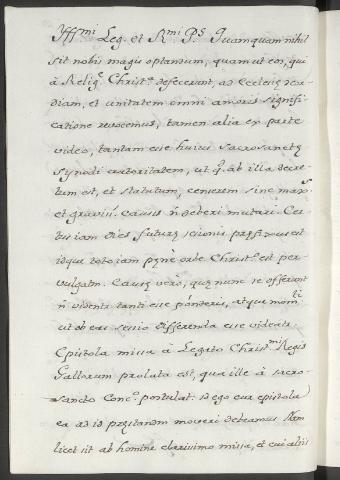 Ill.mi Leg. et R.mi P.s Quamquam nihil
sit nobis magis optandum, quam ut eos, qui
à Relig.e Christ.a defecerunt, ad Ecclesię con-
diam, et unitatem omni amoris signifi
catione revocemus, tamen alia ex parte
video, tantam esse huius Sacrosanctę
Synodi autoritatem, ut q. ab illa decre-
tum est, et statutum, censerem sine max.s
et graviss. causis ñ deberi mutari. Cer-
tus iam dies futurę sessionis pręfixus est
idque toto iam pęnè orbe Christ.o est per
vulgatum. Causę verò, quę nunc se offerunt
ñ videntur tanti esse ponderis, atque mom.ti
ut ob eas sessio differenda esse videatur.
Epistola missa à Legato Christ.mi Regis
Gallorum prolata est, qua ille à sacro-
sancto Conc.o postulat. sed ego eua epistola
ea ad id pręstandum moveri debeamus. Nam
licet sit ab homine clarissimo missa, et cui aliis